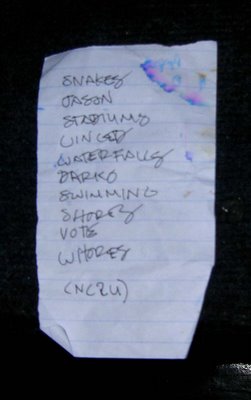 SNAKES
JASON
STADIUMS
WATERFALLS
DARKO
SWIMMING
SHORES
VOTE
WHORES